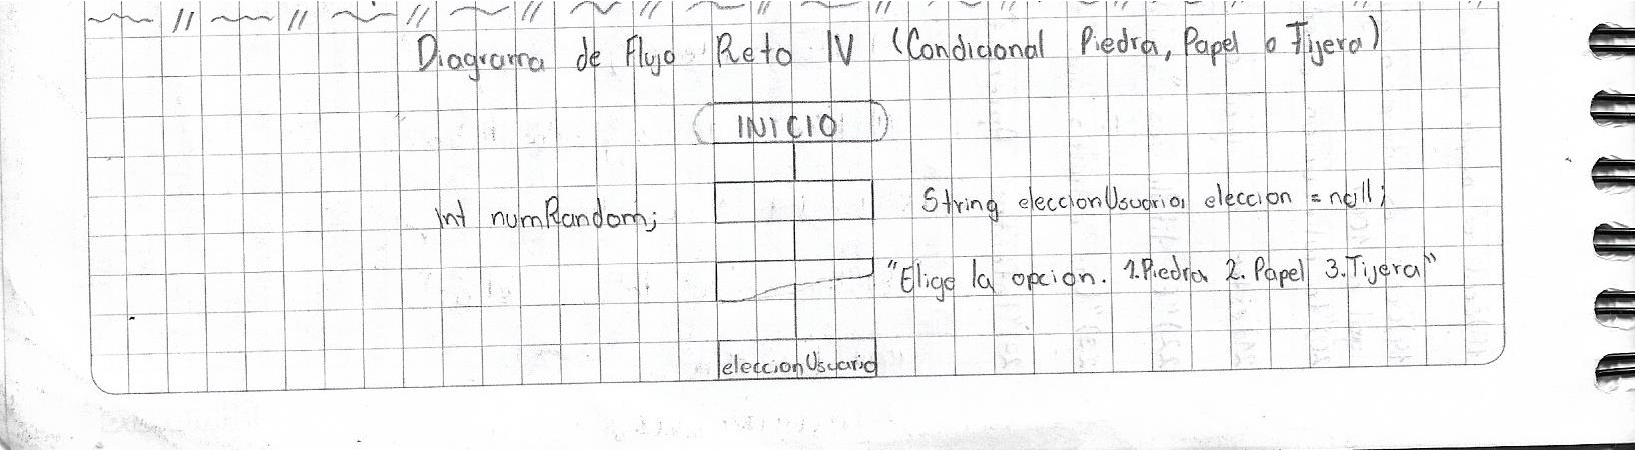 Diagrama de Flujo Reto IV (Condicional Piedra, Papel o Tijera)
INICIO
int numRandom;
String eleccionUsuario, eleccion = null;
"Elige la opcion. 1.Piedra 2. Papel 3.Tijera"
eleccionUsuario